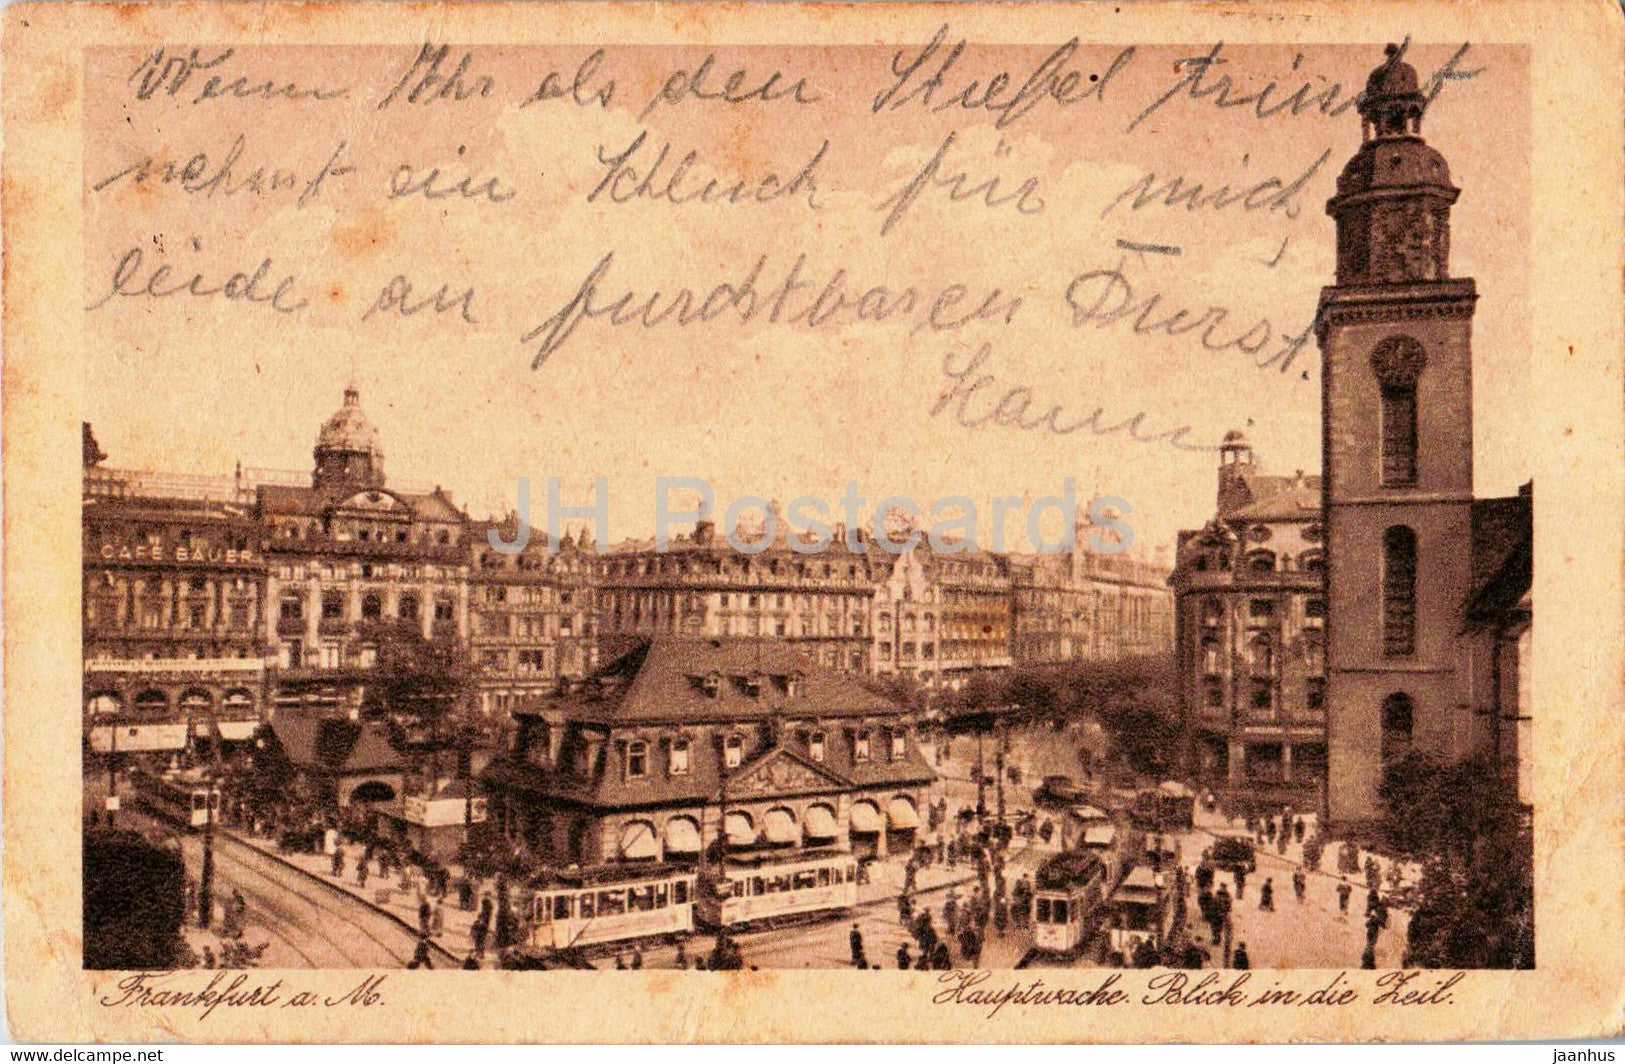 Wenn Ihr als den Stiefel trinkt
nehmt ein Schluck für mich
leide an furchtbaren Durst.
Hann
CAFÉ BAUER
JH Postcards
Frankfurt a. M.
Hauptwache. Blick in die Zeil.
www.delcampe.net
jaanhus